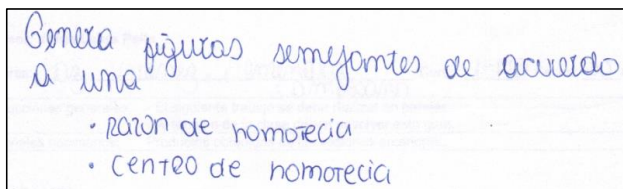 Genera figuras semejantes de acuerdo
a una
· razón de homotecia
· centro de homotecia